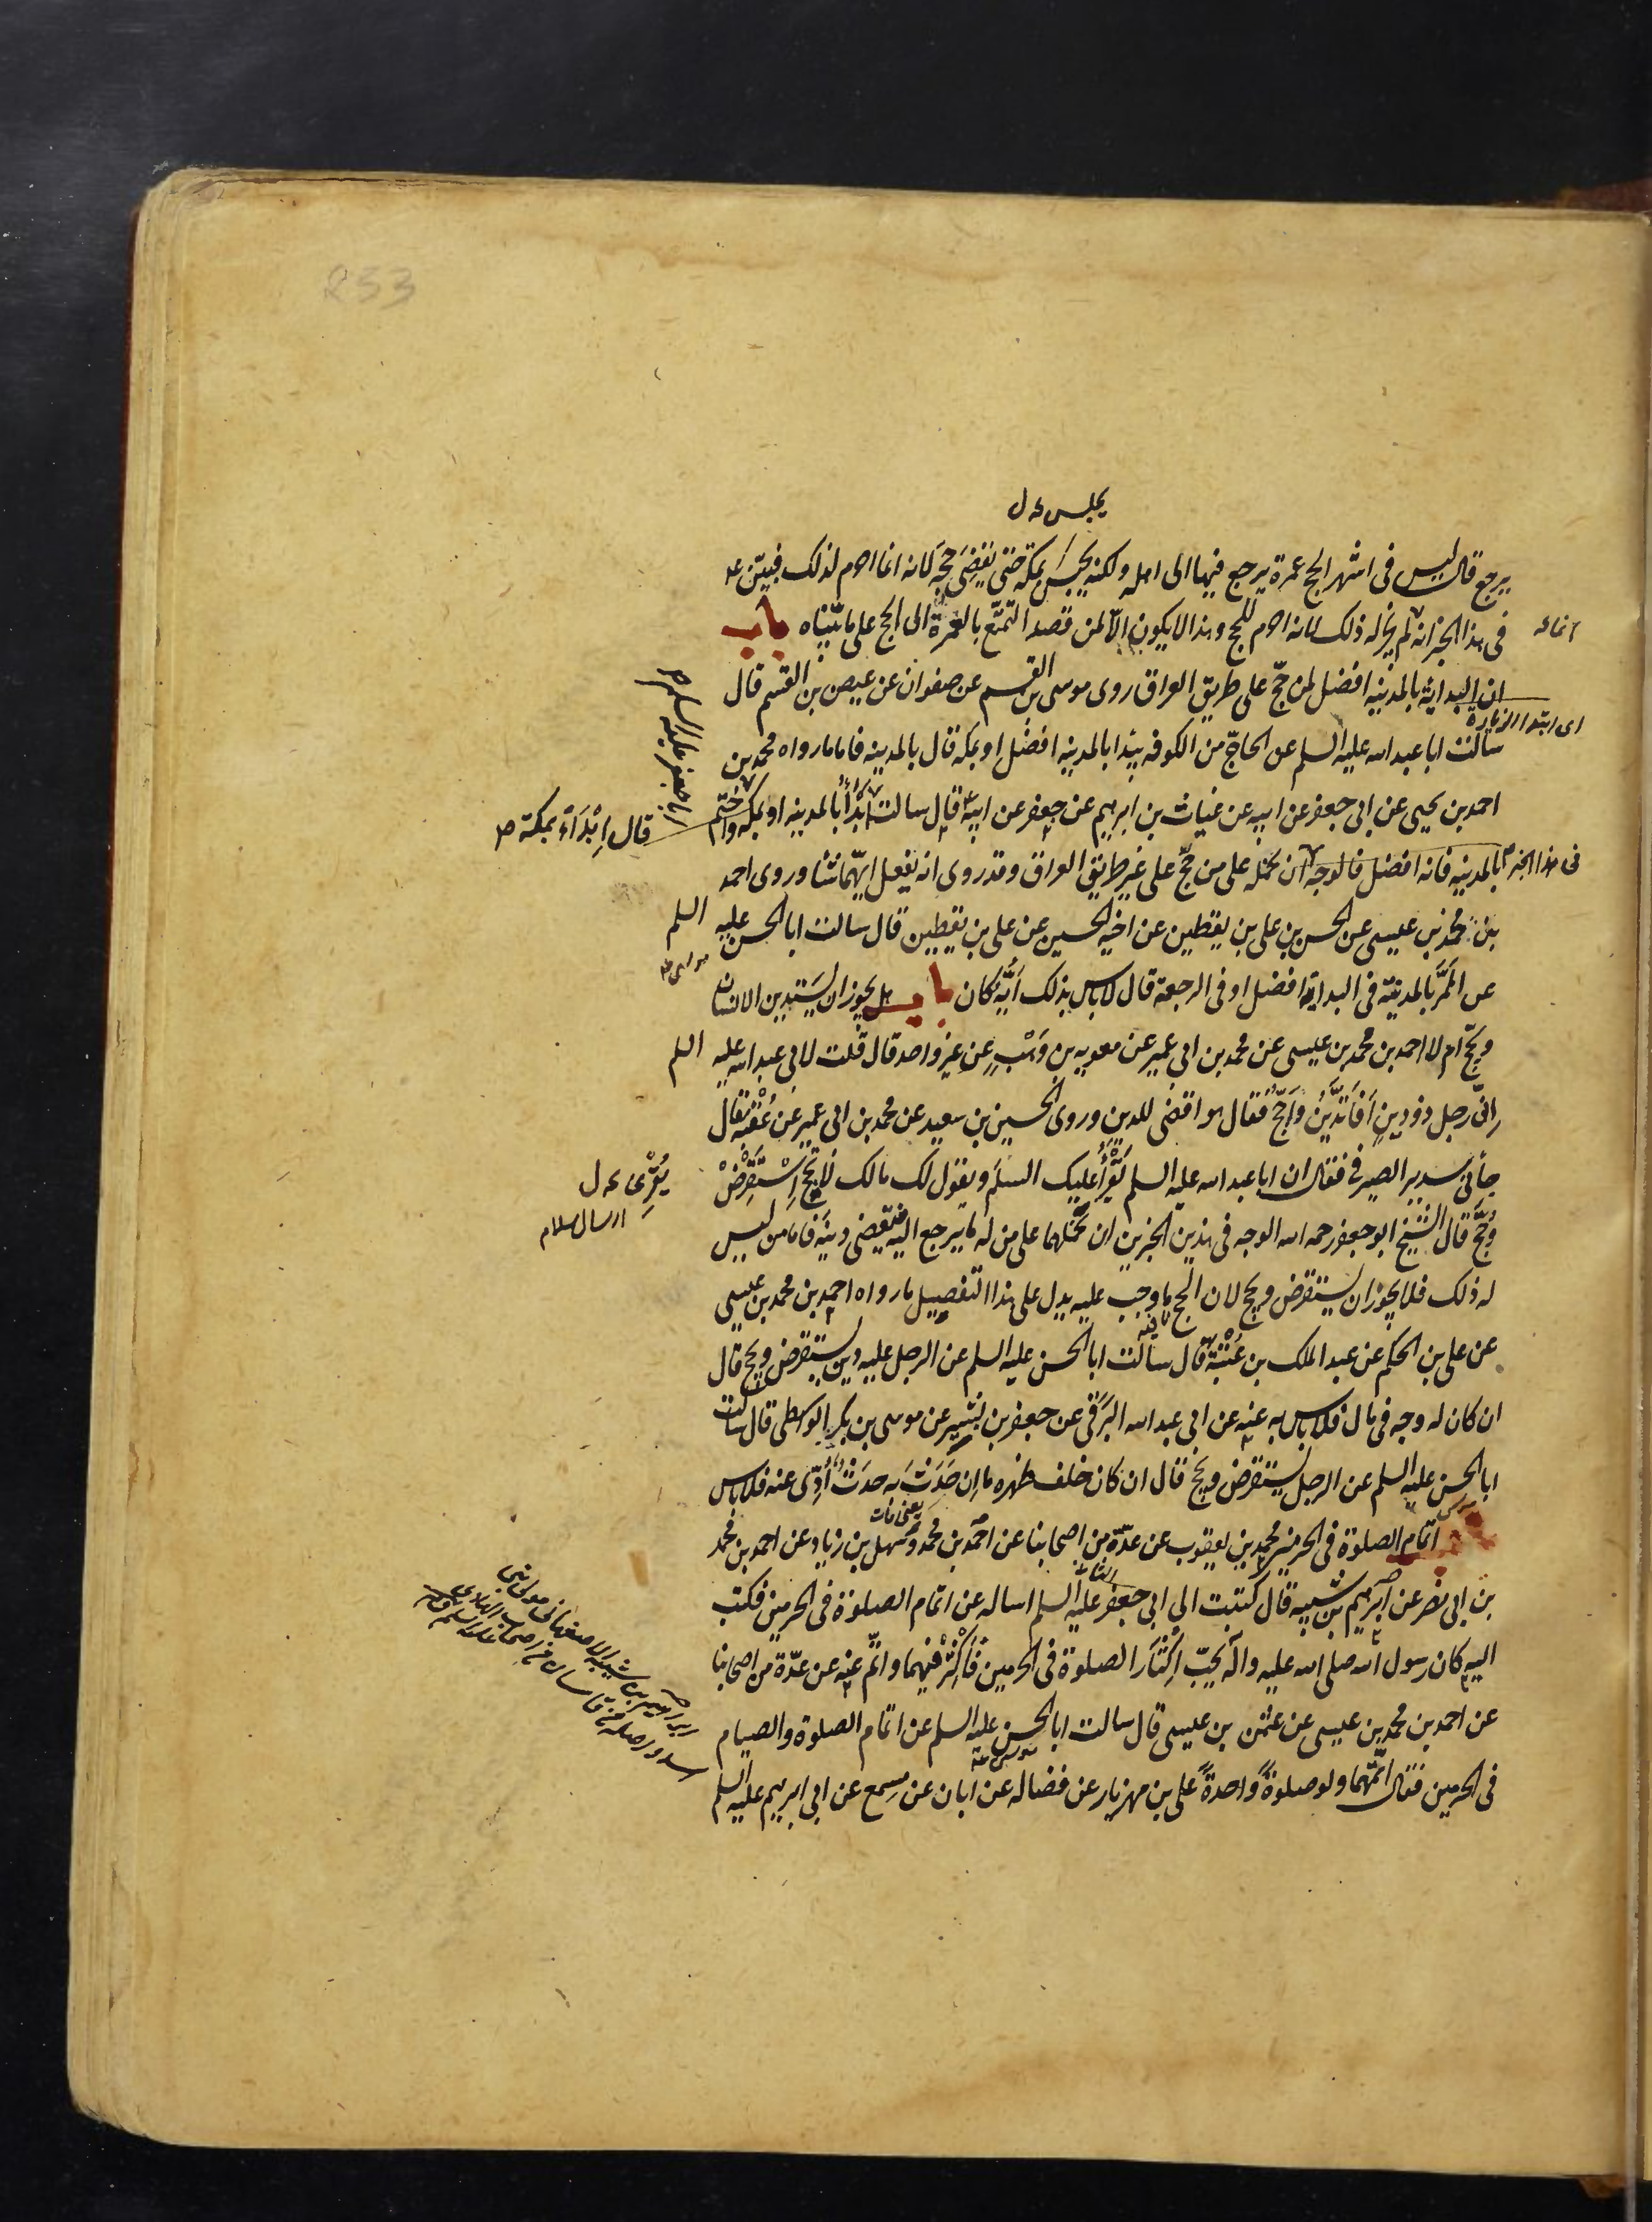 233
يجلس عه ل
يرجع قال ليس فى اشهر الحج عمرة يرجع فيها الى اهله ولكنه يحبس بمكة حتى يقضى حجّه لانه انما احرم لذلك فبيّن عه
فى هذا الخبر انه لم يجز له ذلك لانه احرم للحج وهذا لا يكون الّا لمن قصد التمتّع بالعمرة الى الحج على ما بيّناه باب
انما عه
ان البداية بالمدينه افضل لمن حجّ على طريق العراق روى موسى بن القسم عن صفوان عن عيص بن القسم قال
اى ابتدا الزيارة
سالت ابا عبد الله عليه السلم عن الحاجّ من الكوفه يبدا بالمدينه افضل او بمكه قال بالمدينه فاما ما رواه محمد بن
احمد بن يحيى عن ابى جعفر عن ابيه عن غياث بن ابرهيم عن جعفر عن ابيه قال سالت أَبْدَأُ بالمدينه او بمكه واختم
ابا جعفر عليه السلم ص
قال اِبْدَأْ بمكة ص
بالمدينه فانه افضل فالوجه ان نحمله على من حجّ على غير طريق العراق وقد روى انه يفعل ايّهما شا وروى احمد
فى هذا الخبر
بن محمد بن عيسى عن الحسن بن على بن يقطين عن اخيه الحسين عن على بن يقطين قال سالت ابا الحسن عليه السلم
موسى عه
عن الْمَمَرّ بالمدينة فى البداية افضل او فى الرجعة قال لا باس بذلك أيّه كان باب هل يجوز ان يستدين الانسان
ويحجّ ام لا احمد بن محمد بن عيسى عن محمد بن ابى عمير عن معويه بن وَهْبٍ عن غير واحد قال قلت لابى عبد الله عليه السلم
انّى رجل ذو دينٍ اَفَاَتَدَيَّنُ وَاَحُجّ فقال هو اقضى للدين وروى الحسين بن سعيد عن محمد بن ابى عمير عن عُقْبَه قال
جأنى سدير الصيرفى فقال ان ابا عبد الله عليه السلم يَقْرَأُ عليك السلم ويقول لك مالك لا تحج اِسْتَقْرِضْ
يُقْرِئ عه ل
ارسال سلام
وَحُجَّ قال الشيخ ابو جعفر رحمه الله الوجه فى هذين الخبرين ان نحملهما على من له ما يرجع اليه فيقضى دينَه فاما من ليس
له ذلك فلا يجوز ان يستقرض ويحج لان الحج ما وجب عليه يدل على هذا التفصيل ما رواه احمد بن محمد بن عيسى
عن على بن الحكم عن عبد الملك بن عُتْبَة قال سالت ابا الحسن عليه السلم عن الرجل عليه دين يستقرض ويحج قال
ان كان له وجه فى مال فلا باس به عنه عن ابى عبد الله البرقى عن جعفر بن بشير عن موسى بن بكر الواسطى قال سالت
ابا الحسن عليه السلم عن الرجل يستقرض ويحج قال ان كان خلف ظهره ما اِن حَدَثَ به حدثٌ أُدِّىَ عنه فلا باس
موسى
يعنى مات
باب اتمام الصلوة فى الحرمين محمد بن يعقوب عن عدّة من اصحابنا عن احمد بن محمد وسهل بن زياد عن احمد بن محمد
بن ابى نصر عن ابرهيم بن شيبه قال كتبت الى ابى جعفر عليه السلم اساله عن اتمام الصلوة فى الحرمين فكتب
الثانى
اليه كان رسول الله صلى الله عليه واله يحبّ اِكْثَارَ الصلوة فى الحرمين فَأَكْثِرْ فيهما واتمّ عنه عن عدّة من اصحابنا
عن احمد بن محمد بن عيسى عن عثمن بن عيسى قال سالت ابا الحسن عليه السلم عن اتمام الصلوة والصيام
موسى عه
فى الحرمين فقال اتمّهما ولو صلوةً واحدةً على بن مهزيار عن فضاله عن ابان عن مِسمع عن ابى ابرهيم عليه السلم
ابراهيم بن شيبه الاصفهانى مولى بنى
اسد واصله من قاسان من اصحاب الهادى